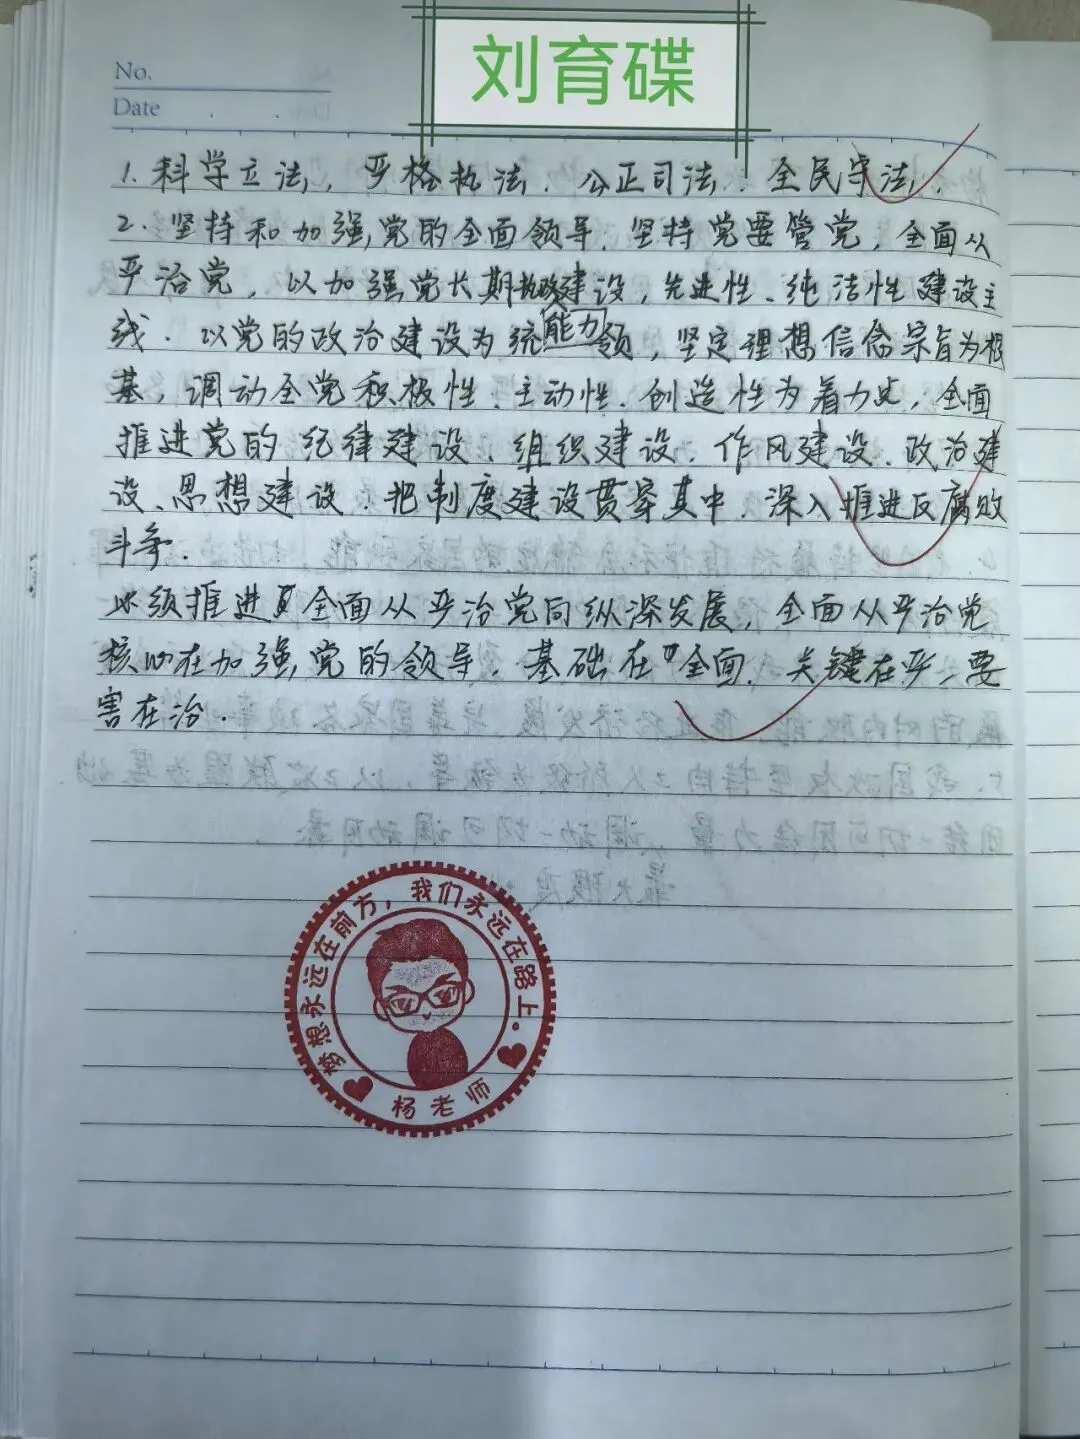 刘育碟
No.
Date
1. 科学立法，严格执法、公正司法、全民守法，
2. 坚持和加强党的全面领导、坚持党要管党，全面从
严治党，以加强党长期执政建设，先进性、纯洁性建设主
能力
线．以党的政治建设为统领，坚定理想信念宗旨为根
基，调动全党积极性、主动性、创造性为着力点，全面
推进党的纪律建设、组织建设、作风建设、政治建
设、思想建设．把制度建设贯穿其中．深入推进反腐败
斗争．
必须推进全面从严治党向纵深发展，全面从严治党
核心在加强党的领导，基础在全面．关键在严，要
害在治．
梦想永远在前方，我们永远在路上。
杨老师